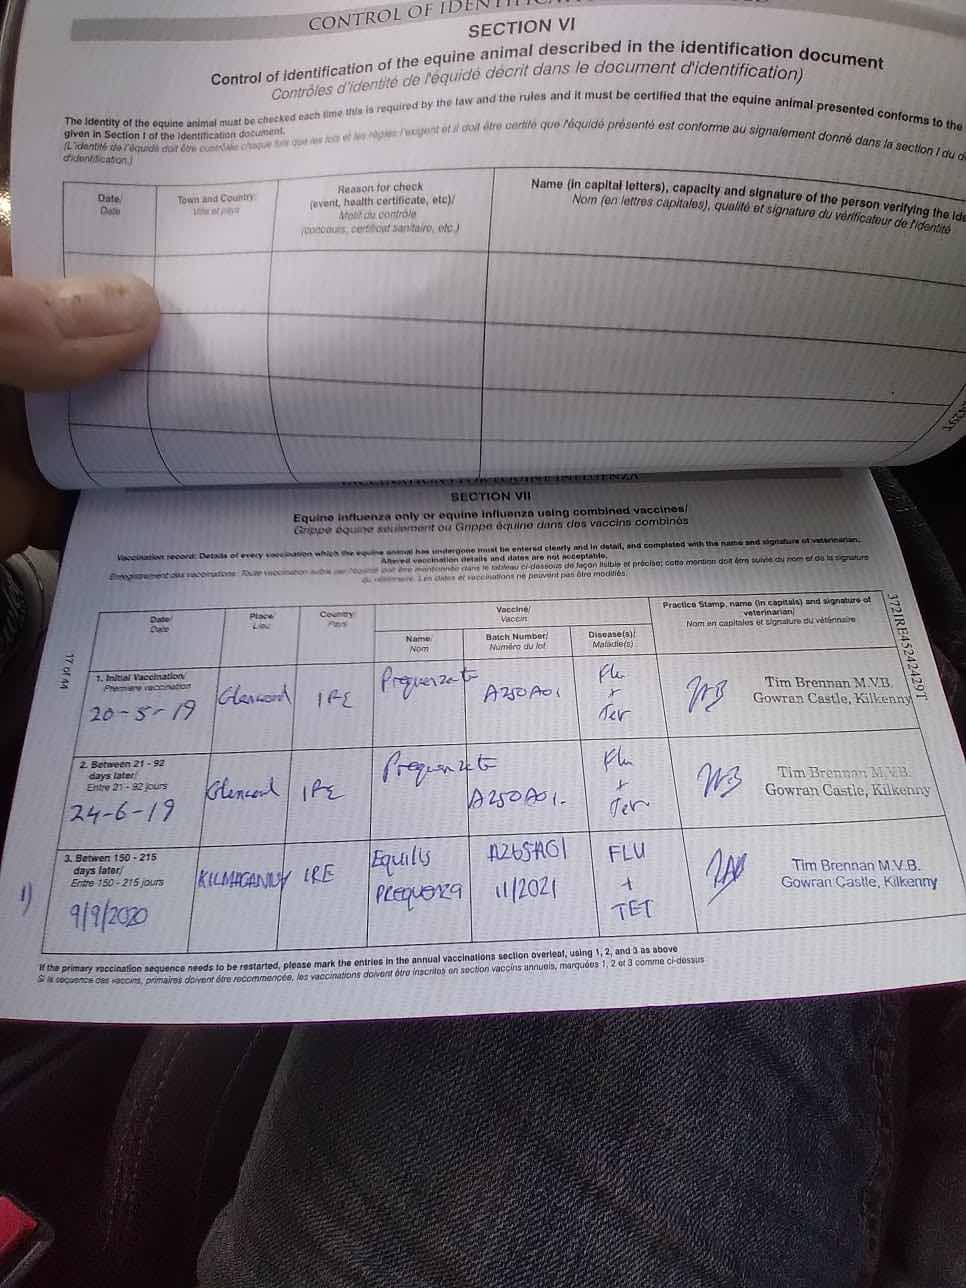 CONTROL OF
SECTION VI
Control of identification of the equine animal described in the identification document
Contrôles d'identité de l'équidé décrit dans le document d'identification)
The Identity of the equine animal must be checked each time this is required by the law and the rules and it must be certified that the equine animal presented conforms to the
given in Section I of the Identification document.
(L'identité de l'équidé doit être contrôlée chaque fois que les lois et les règles l'exigent et il doit être certifié que l'équidé présenté est conforme au signalement donné dans la section I du
d'identification.)
Date/
Date
Town and Country/
Ville et pays
Reason for check
(event, health certificate, etc)/
Motif du contrôle
(concours, certificat sanitaire, etc.)
Name (in capital letters), capacity and signature of the person verifying the
Nom (en lettres capitales), qualité et signature du vérificateur de l'identité
SECTION VII
Equine influenza only or equine influenza using combined vaccines/
Grippe équine seulement ou Grippe équine dans des vaccins combinés
Vaccination record: Details of every vaccination which the equine animal has undergone must be entered clearly and in detail, and completed with the name and signature of veterinarian.
Altered vaccination details and dates are not acceptable.
Enregistrement des vaccinations: Toute vaccination subie par l'équidé doit être mentionnée dans le tableau ci-dessous de façon lisible et précise; cette mention doit être suivie du nom et de la signature
du vétérinaire. Les dates et vaccinations ne peuvent pas être modifiés.
Date/
Date
Place/
Lieu
Country/
Pays
Vaccine/
Vaccin
Name/
Nom
Batch Number/
Numéro du lot
Disease(s)/
Maladie(s)
Practice Stamp, name (in capitals) and signature of
veterinarian/
Nom en capitales et signature du vétérinaire
372IRE45242429T
17 of 44
1. Initial Vaccination/
Première vaccination
20-5-19
IRE
A250A01
Flu
+
Tet
Tim Brennan M.V.B.
Gowran Castle, Kilkenny
2. Between 21 - 92
days later/
Entre 21 - 92 jours
24-6-19
IRE
A250A01.
Flu
+
Tet
Tim Brennan M.V.B.
Gowran Castle, Kilkenny
1)
3. Betwen 150 - 215
days later/
Entre 150 - 215 jours
9/9/2020
KILMAGANNY
IRE
Equilis
PREQUENZA
A265AG1
11/2021
FLU
+
TET
Tim Brennan M.V.B.
Gowran Castle, Kilkenny
If the primary vaccination sequence needs to be restarted, please mark the entries in the annual vaccinations section overleaf, using 1, 2, and 3 as above
Si la sequence des vaccins, primaires doivent être recommencée, les vaccinations doivent être inscrites en section vaccins annuels, marquées 1, 2 et 3 comme ci-dessus